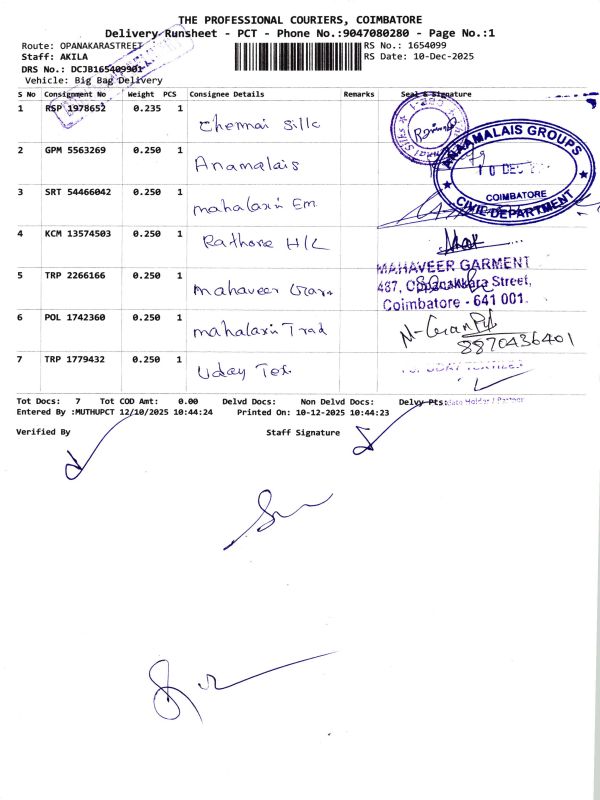 THE PROFESSIONAL COURIERS, COIMBATORE
Delivery Runsheet - PCT - Phone No.:9047080280 - Page No.:1
Route: OPANAKARASTREET
RS No.: 1654099
Staff: AKILA
RS Date: 10-Dec-2025
DRS No.: DCJB165409901
Vehicle: Big Bag Delivery
S No Consignment No Weight PCS Consignee Details Remarks Seal & Signature
1 RSP 1978652 0.235 1 Chennai Silk
2 GPM 5563269 0.250 1 Anamalais
ANAAMALAIS GROUPS
10 DEC
COIMBATORE
CIVIL DEPARTMENT
3 SRT 54466042 0.250 1 mahalaxmi Em
4 KCM 13574503 0.250 1 Rathore H/L
5 TRP 2266166 0.250 1 mahaveer Gar
MAHAVEER GARMENT
487, Oppanakkara Street,
Coimbatore - 641 001.
6 POL 1742360 0.250 1 mahalaxmi Trad
8870436401
7 TRP 1779432 0.250 1 Uday Tex
For UDAY TEXTILES
Tot Docs: 7 Tot COD Amt: 0.00 Delvd Docs: Non Delvd Docs: Delvy Pts:
Holder / Partner
Entered By :MUTHUPCT 12/10/2025 10:44:24 Printed On: 10-12-2025 10:44:23
Verified By Staff Signature